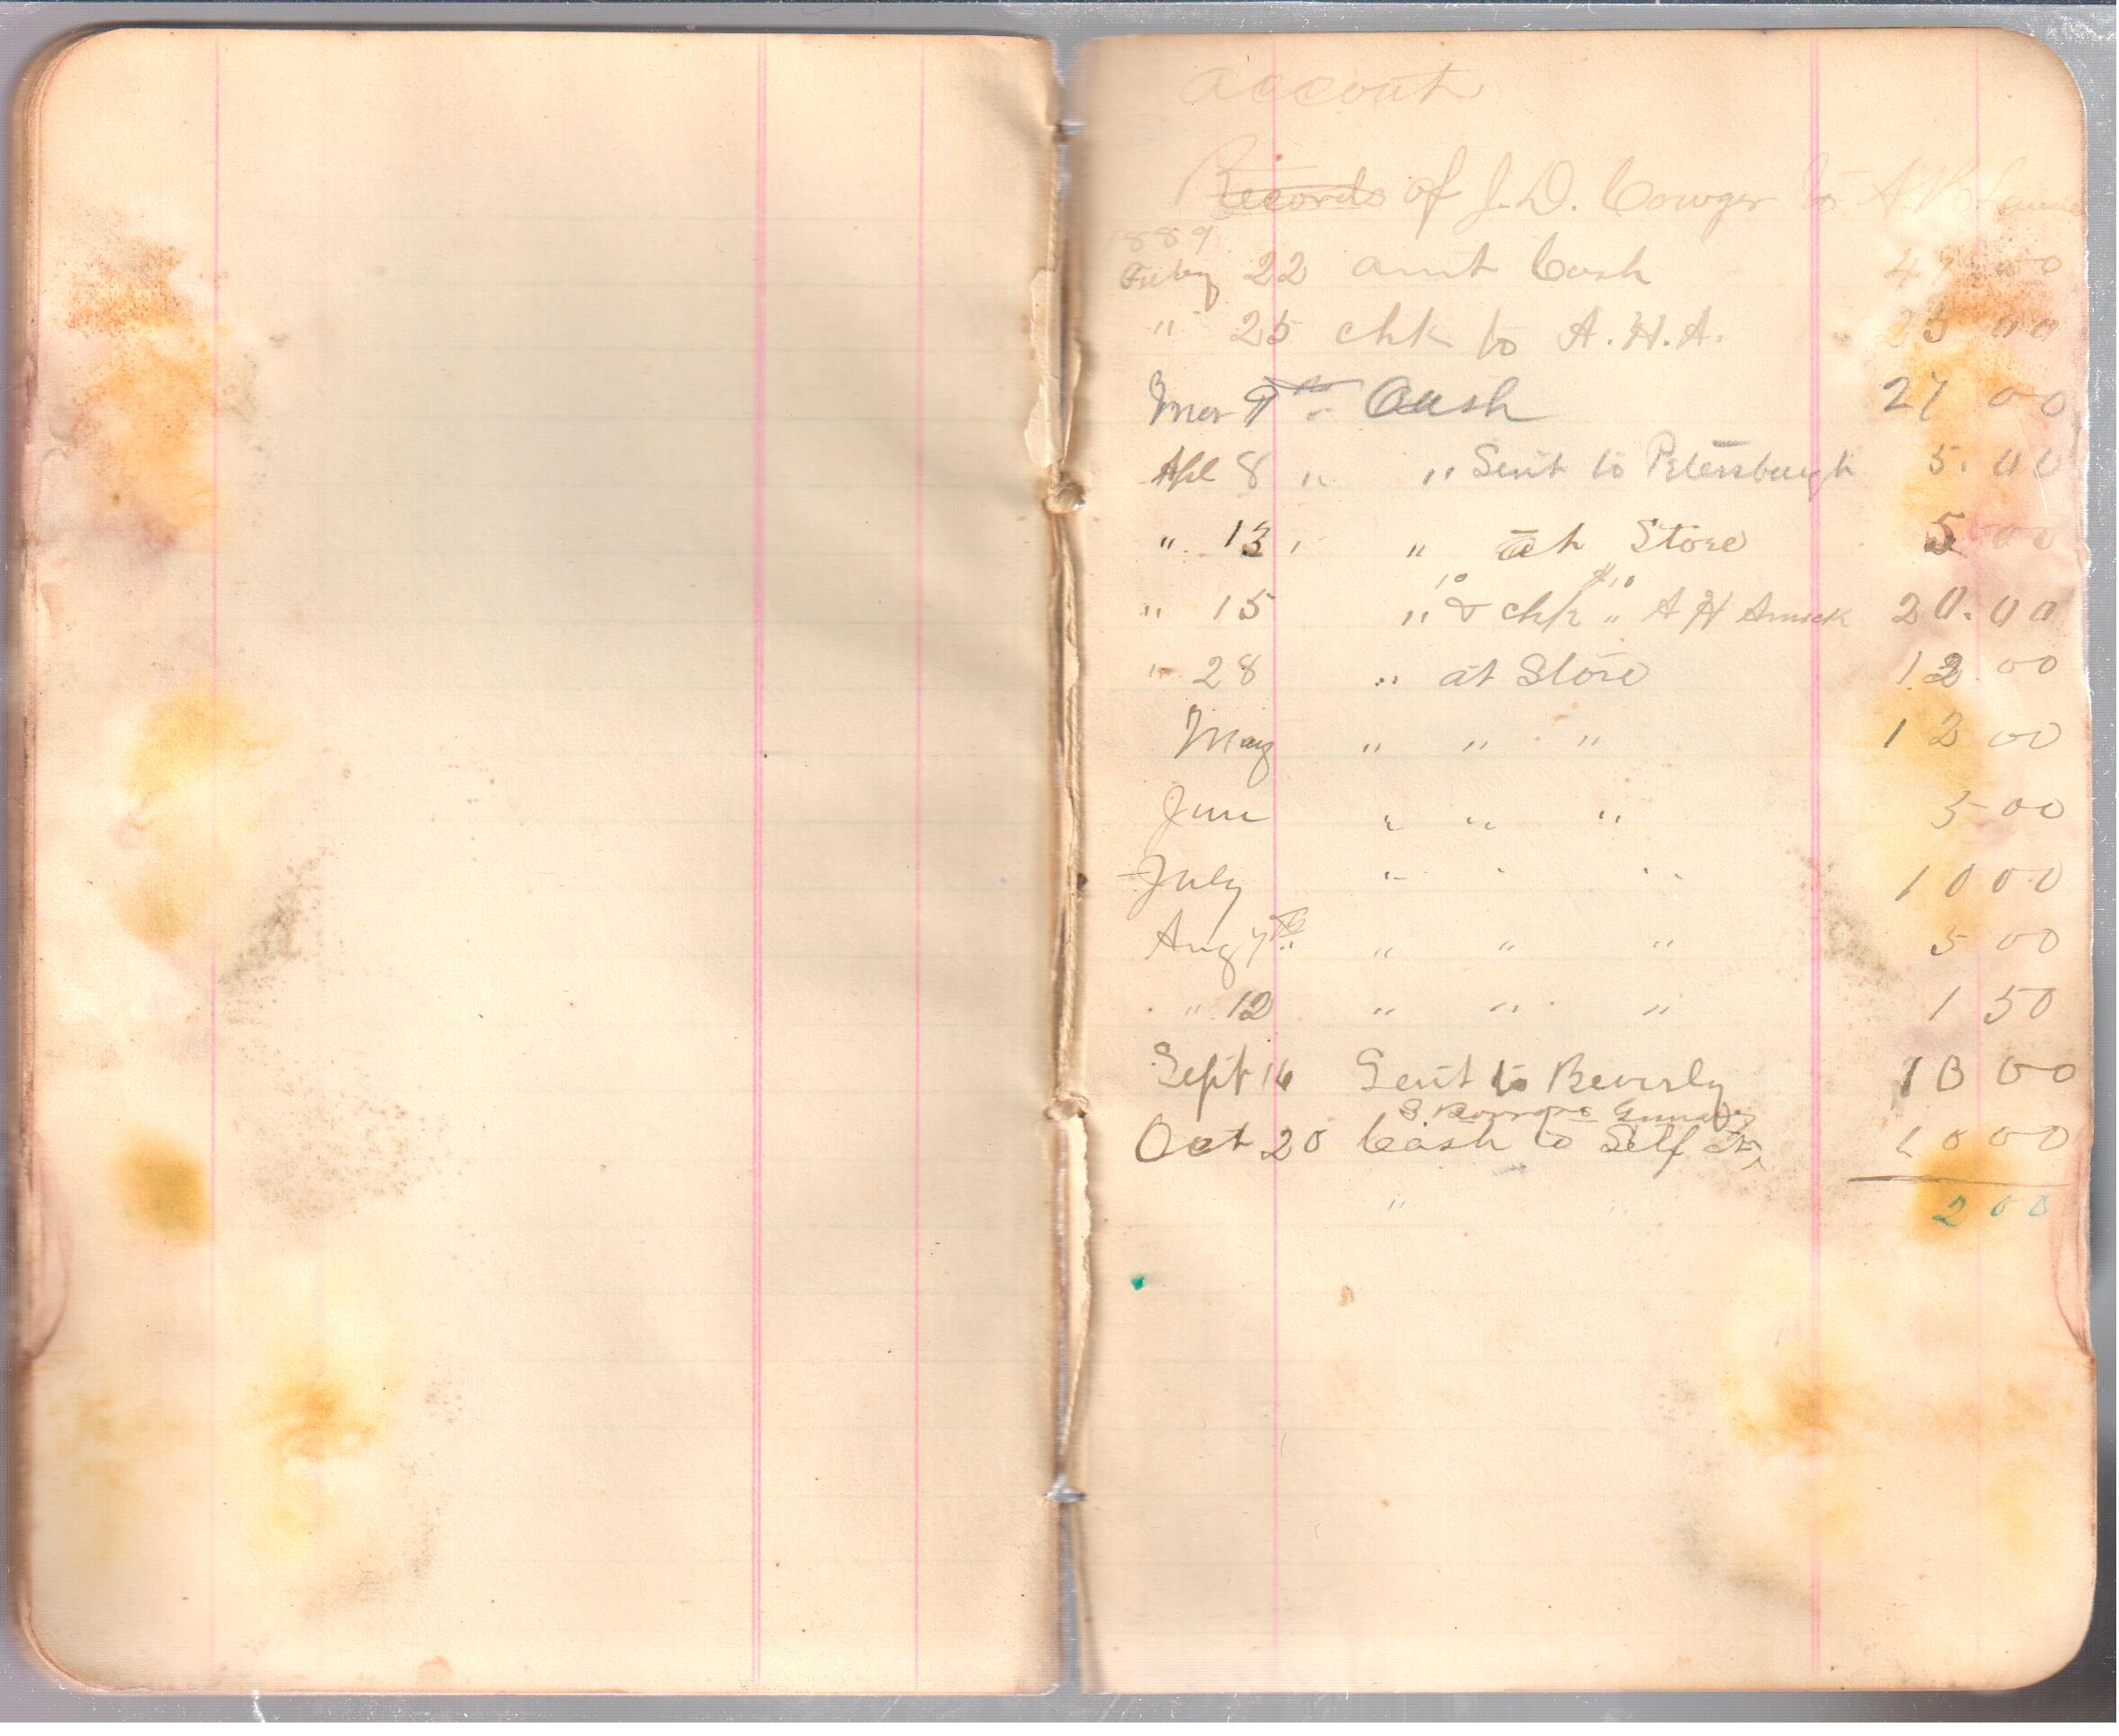 account
Records of J. D. Cowger to A. B.
1889
Feby 22 amt Cash 47 00
" 25 chk to A. H. A. 25 00
Mar 9th " Cash 27 00
Apl 8 " " Sent to Petersburgh 5.00
" 13 " " at Store 5 00
10 $10
" 15 " & chk " A H Amick 20.00
" 28 " at Store 12 00
May " " " 12 00
Jun " " " 5 00
July " " " 10 00
Aug 7th " " " 5 00
" 12 " " " 1 50
Sept 16 Sent to Beverly 10 00
Oct 20 Cash to Self 10 00
" " 2 00